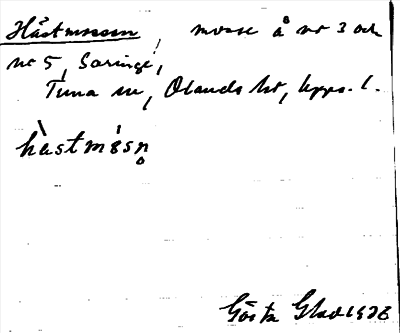 Hästmossen, mosse å nr 3 och
nr 5, Saringe,
Tuna sn, Olands hd, Upps. l.
hàstmósn̥
Gösta Glad 1928